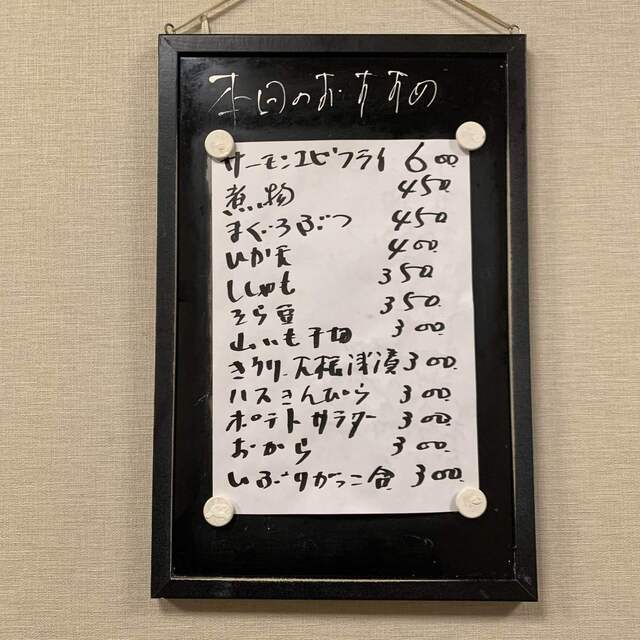 本日のおすすめ
サーモンエビフライ 600.
煮物 450.
まぐろぶつ 450.
いか天 400.
ししゃも 350.
そら豆 350.
山いも千切 300.
きゅうり、大根浅漬 300.
ハスきんぴら 300.
ポテトサラダー 300.
おから 300.
いぶりがっこ 300.